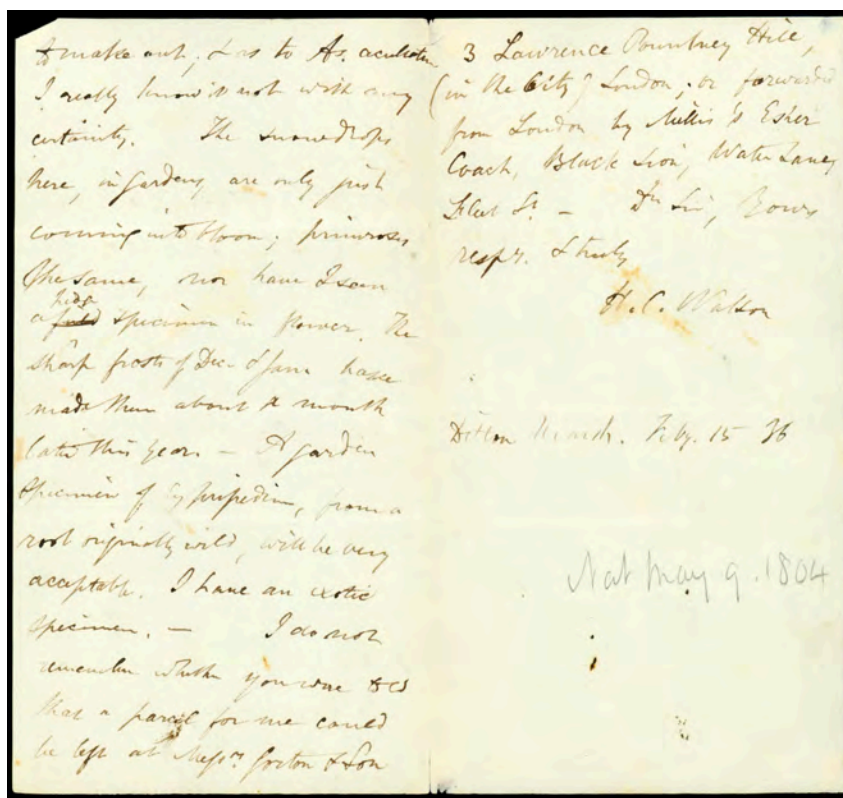 to make out; & as to As. aculeatum
I really know it not with any
certainty. The snowdrops
here, in gardens, are only just
coming into bloom; primroses
the same, nor have I seen
a field hedge specimen in flower. The
sharp frosts of Dec. & Jany have
made them about a month
later this year. — A garden
specimen of Cypripedium, from a
root originally wild, will be very
acceptable. I have an exotic
specimen. — I do not
remember whether you were told
that a parcel for me could
be left at Messrs. Gorton & Son
3 Lawrence Pountney Hill,
(in the City) London; or forwarded
from London by Millis's Esher
Coach, Black Lion, Water Lane,
Fleet St. — Dr Sir, Yours
respy. & truly
H. C. Watson
Ditton Marsh. Feby. 15 36
Nat May 9. 1804